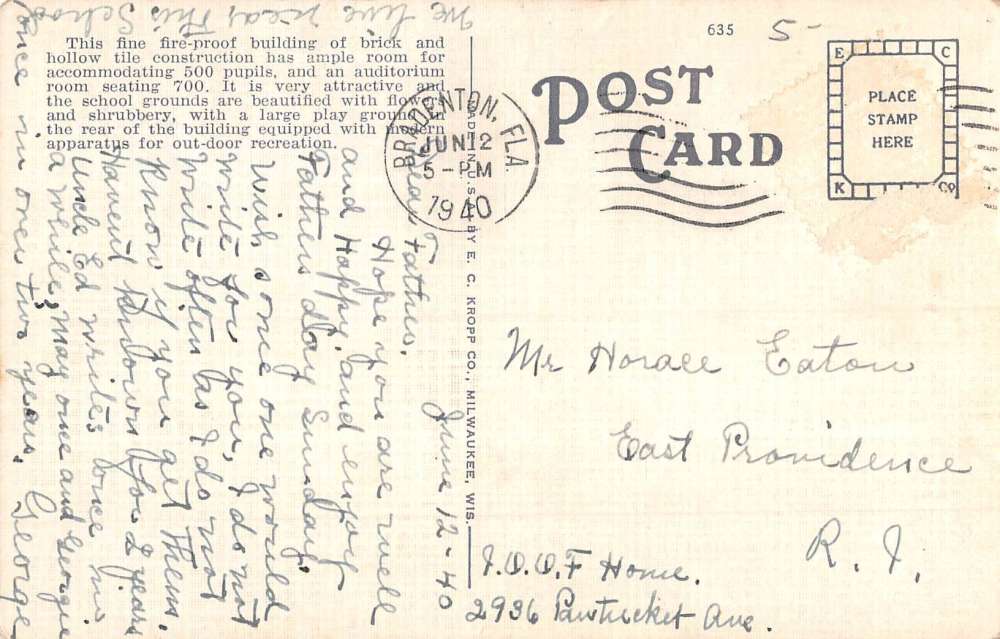 We live near this School
This fine fire-proof building of brick and
hollow tile construction has ample room for
accommodating 500 pupils, and an auditorium
room seating 700. It is very attractive and
the school grounds are beautified with flowers
and shrubbery, with a large play ground in
the rear of the building equipped with modern
apparatus for out-door recreation.
635
5-
POST
CARD
E C
K CO
PLACE
STAMP
HERE
BRADENTON, FLA.
JUN 12
5-PM
1940
MADE IN U.S.A. BY E. C. KROPP CO., MILWAUKEE, WIS.
June 12-40
Dear Father.
Hope you are well
and Happy. and enjoy
Fathers day Sunday.
Wish some one would
write for you, I do not
write often as I do not
know if you get them.
Havent known for 2 years
Uncle Ed writes once in
a while, may once and Georgie
once in over two years.
George
Mr Horace Eaton
East Providence
R. I.
I.O.O.F Home.
2936 Pawtucket Ave.